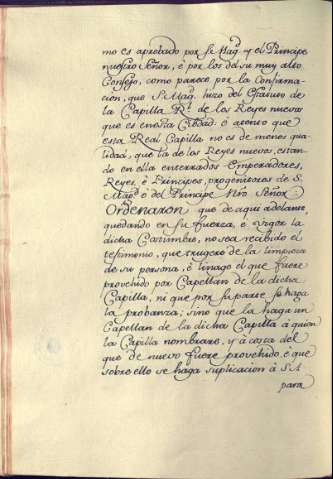 mo es aprobado por su Magd. y el Principe
nuestro Señor, é por los del su muy alto
Consejo, como parece por la Confirma-
cion, que Su Magd. hizo del Estatuto de
la Capilla Rl. de los Reyes nuevos
que es en esta Cibdad: é atento que
esta Real Capilla no es de menos qua-
lidad, que la de los Reyes nuevos, estan-
do en ella enterrados Emperadores,
Reyes, é Principes, progenitores de S.
Magd. é del Principe Ntro Señor.
Ordenaron que de aqui adelante,
quedando en su fuerza, é vigor la
dicha Costumbre, no sea recibido el
testimonio, que truxere de la limpieza
de su persona, é linage el que fuere
provehido por Capellan de la dicha
Capilla, ni que por su parte se haga
la probanza; sino que la haga un
Capellan de la dicha Capilla á quien
la Capilla nombrare, y á costa del
que de nuevo fuere provehido, é que
sobre ello se haga suplicacion á S.A
para